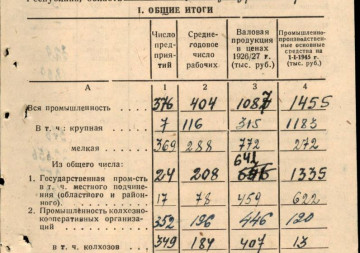 Республика, область
I. ОБЩИЕ ИТОГИ
Число предприятий | Среднегодовое число рабочих | Валовая продукция в ценах 1926/27 г. (тыс. руб.) | Промышленно-производственные основные средства на 1-I-1945 г. (тыс. руб.)
А | 1 | 2 | 3 | 4
Вся промышленность | 376 | 404 | 1087 | 1455
В т. ч.: крупная | 7 | 116 | 315 | 1183
мелкая | 369 | 288 | 772 | 272
Из общего числа: | 641
1. Государственная пром-сть | 24 | 208 | 1335
в т. ч. местного подчинения (областного и районного) | 17 | 78 | 459 | 622
2. Промышленность колхозно-кооперативных организаций | 352 | 196 | 446 | 120
в т. ч. колхозов | 349 | 184 | 407 | 13